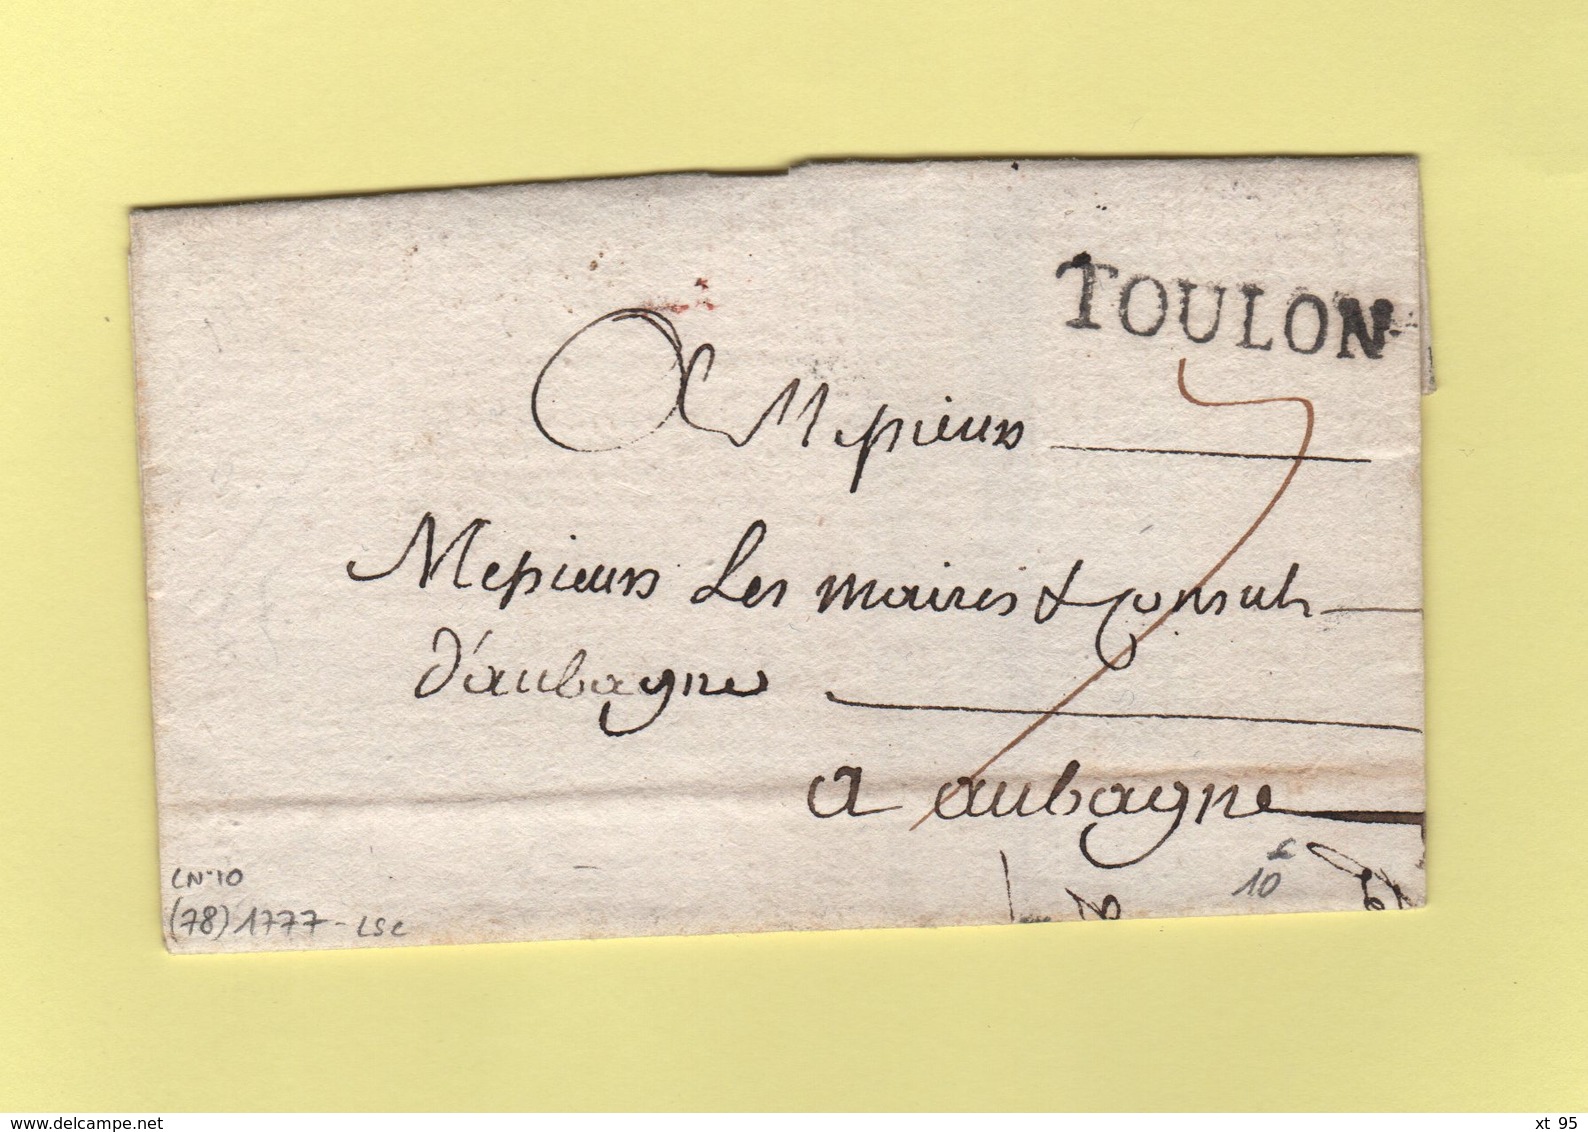 TOULON
A Messieurs
7
Messieurs Les maires & Consuls
d'aubagne
a aubagne
LN°10
(78) 1777 - LSC
10
www.delcampe.net
xt 95